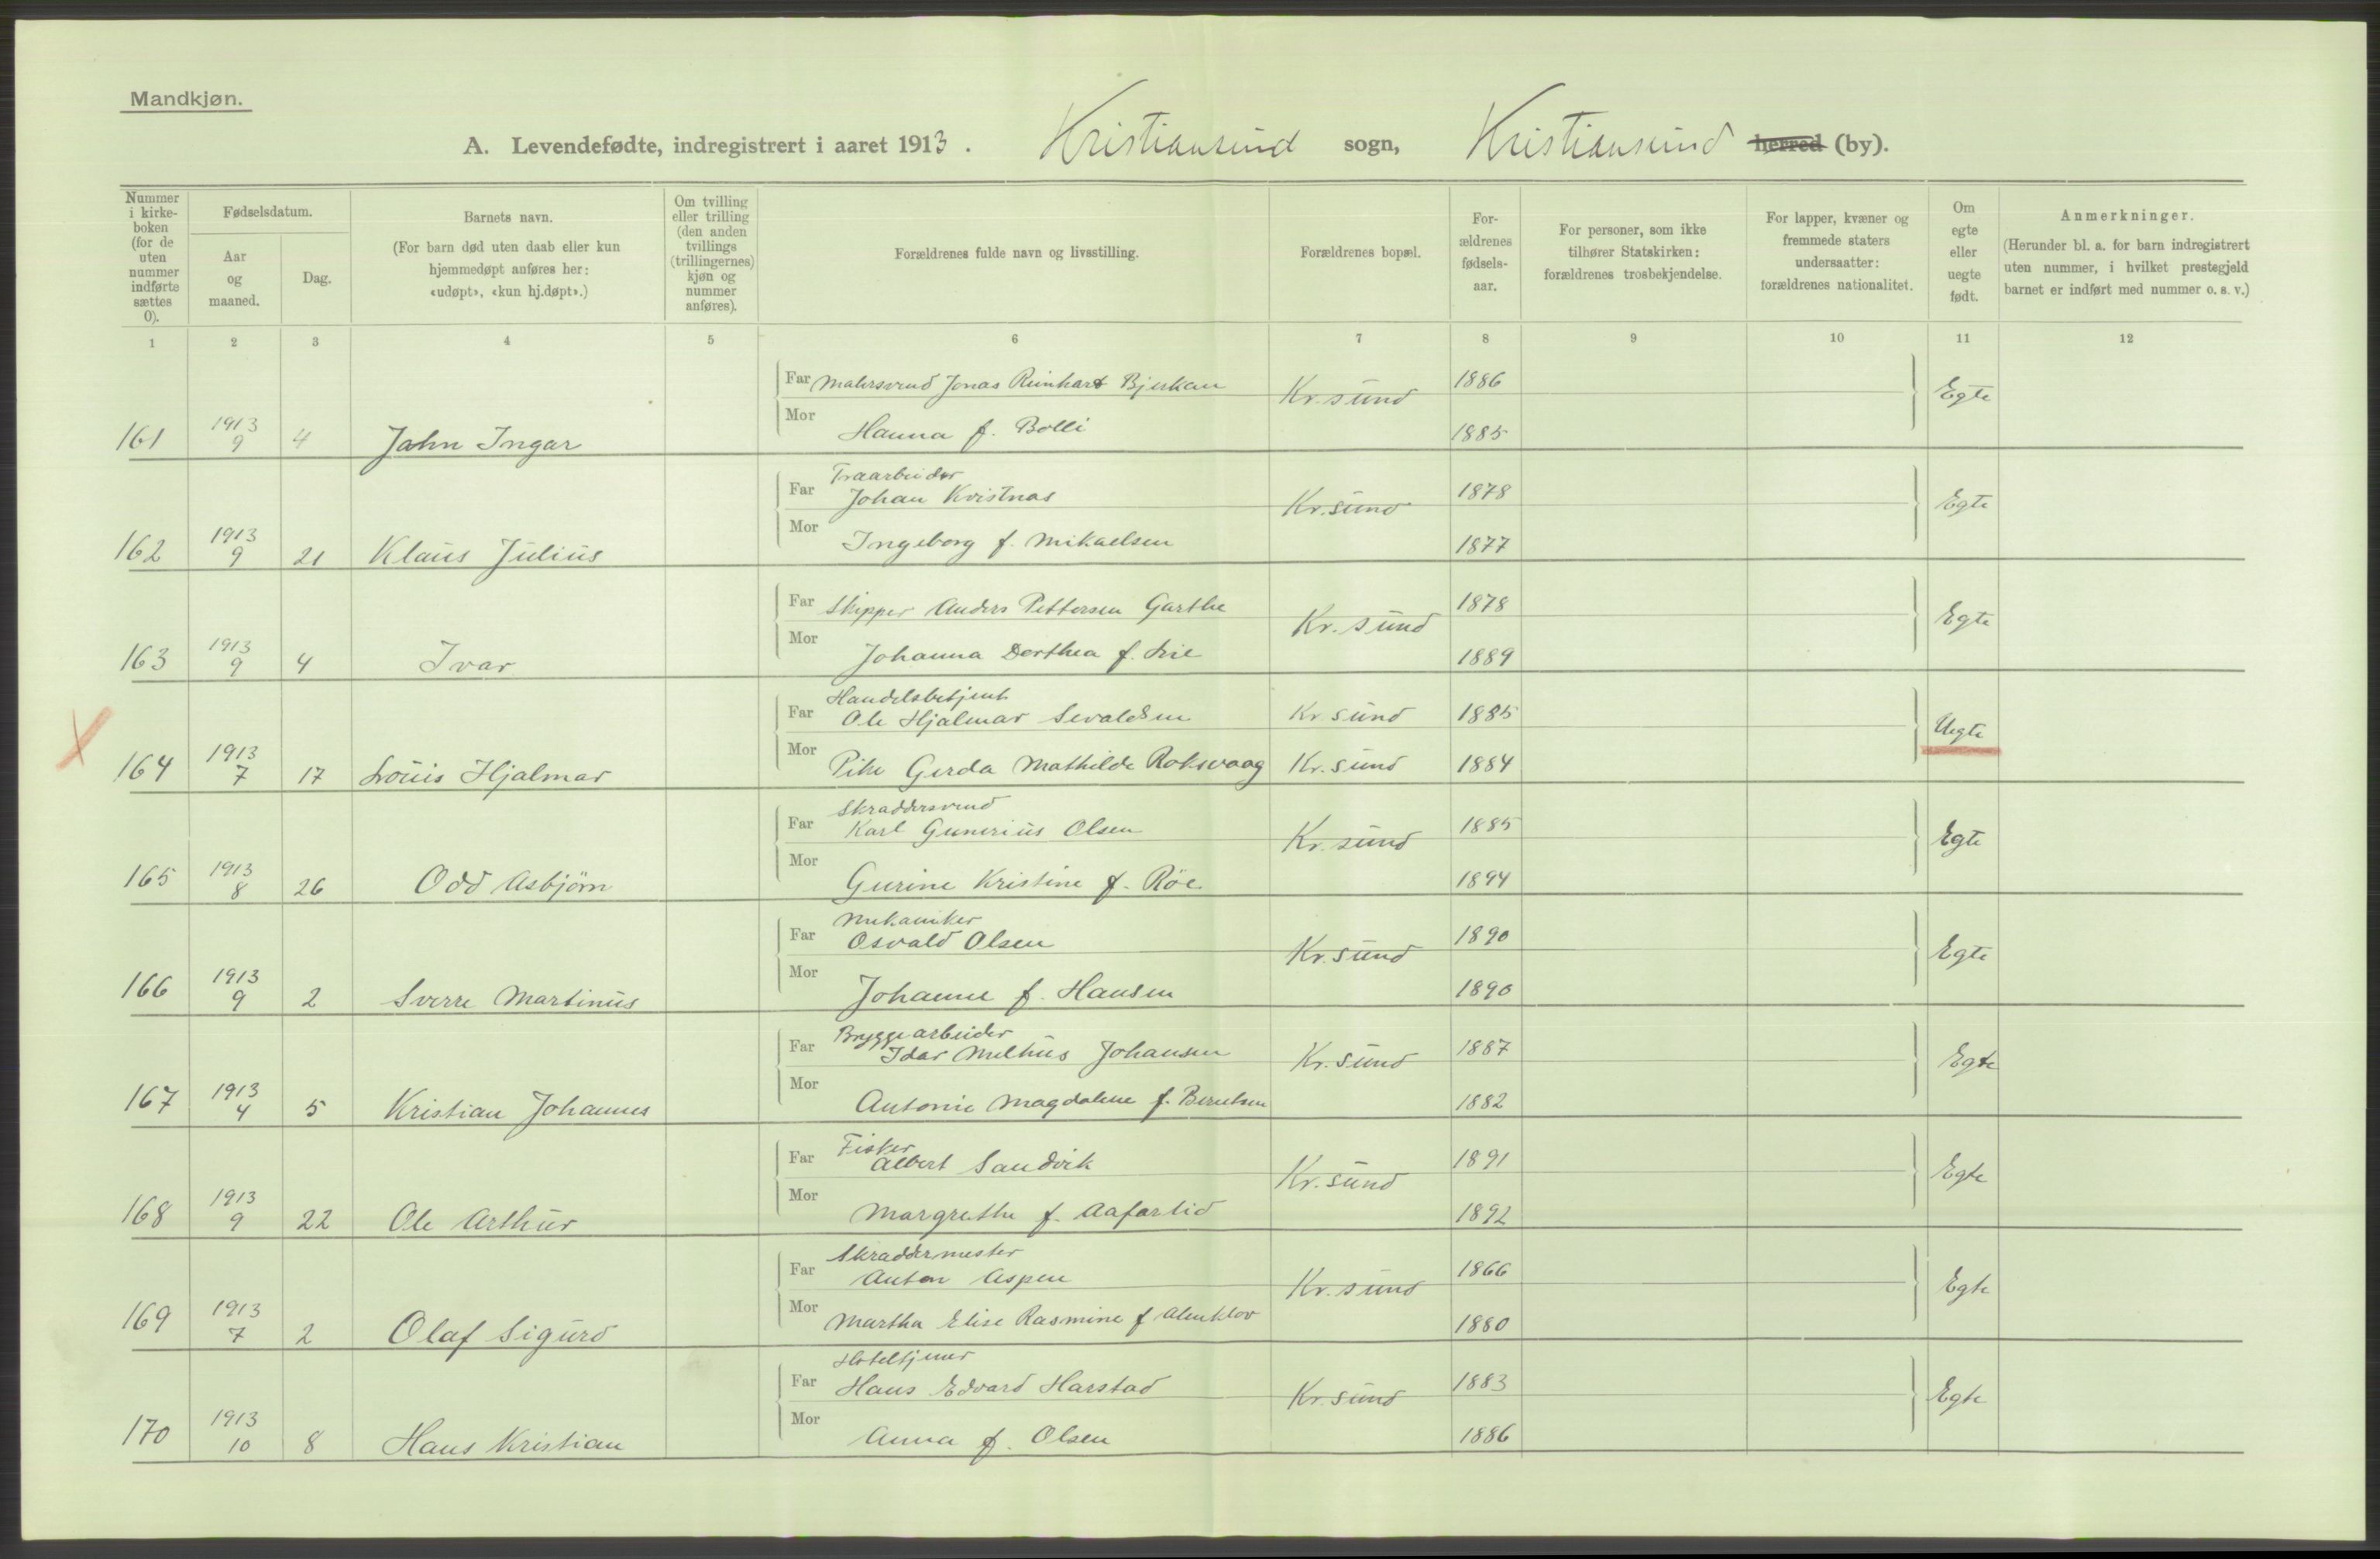 Mandkjøn.
A. Levendefødte, indregistrert i aaret 1913. Kristiansund sogn, Kristiansund herred (by).
Nummer i kirke-boken (for de uten nummer indførte sættes 0).
Fødselsdatum.
Aar og maaned.
Dag.
Barnets navn.
(For barn død uten daab eller kun hjemmedøpt anføres her: «udøpt», «kun hj.døpt».)
Om tvilling eller trilling (den anden tvillings (trillingernes) kjøn og nummer anføres).
Forældrenes fulde navn og livsstilling.
Forældrenes bopæl.
For-ældrenes fødsels-aar.
For personer, som ikke tilhører Statskirken: forældrenes trosbekjendelse.
For lapper, kvæner og fremmede staters undersaatter: forældrenes nationalitet.
Om egte eller uegte født.
Anmerkninger.
(Herunder bl. a. for barn indregistrert uten nummer, i hvilket prestegjeld barnet er indført med nummer o. s. v.)
1 2 3 4 5 6 7 8 9 10 11 12
Far Malersvend Jonas Reinhart Bjerkan Kr.sund 1886 Egte
161 1913 9 4 John Ingar Mor Hanna f. Bolli 1885
Træarbeider
Far Johan Kvistnæs Kr.sund 1878 Egte
162 1913 9 21 Klaus Julius Mor Ingeborg f. Mikaelsen 1877
Far Skipper Anders Pettersen Garthe Kr.sund 1878 Egte
163 1913 9 4 Ivar Mor Johanna Dorthea f. Lie 1889
Handelsbetjent
Far Ole Hjalmar Sevaldsen Kr.sund 1885 Uegte
164 1913 7 17 Louis Hjalmar Mor Pike Gerda Mathilde Roksvaag Kr.sund 1884
Skræddersvend
Far Karl Gunerius Olsen Kr.sund 1885 Egte
165 1913 8 26 Odd Asbjörn Mor Gurine Kristine f. Röe 1894
Mekaniker
Far Osvald Olsen Kr.sund 1890 Egte
166 1913 9 2 Sverre Martinus Mor Johanne f. Hansen 1890
Bryggearbeider
Far Idar Melhus Johansen Kr.sund 1887 Egte
167 1913 4 5 Kristian Johannes Mor Antonie Magdalene f. Berntsen 1882
Fisker
Far Albert Sandvik Kr.sund 1891 Egte
168 1913 9 22 Ole Arthur Mor Margrethe f. Aafarlid 1892
Skræddermester
Far Anton Aspen Kr.sund 1866 Egte
169 1913 7 2 Olaf Sigurd Mor Martha Elise Rasmine f 1880
Hoteltjener
Far Hans Edvard Harstad Kr.sund 1883 Egte
170 1913 10 8 Hans Kristian Mor Anna f. Olsen 1886